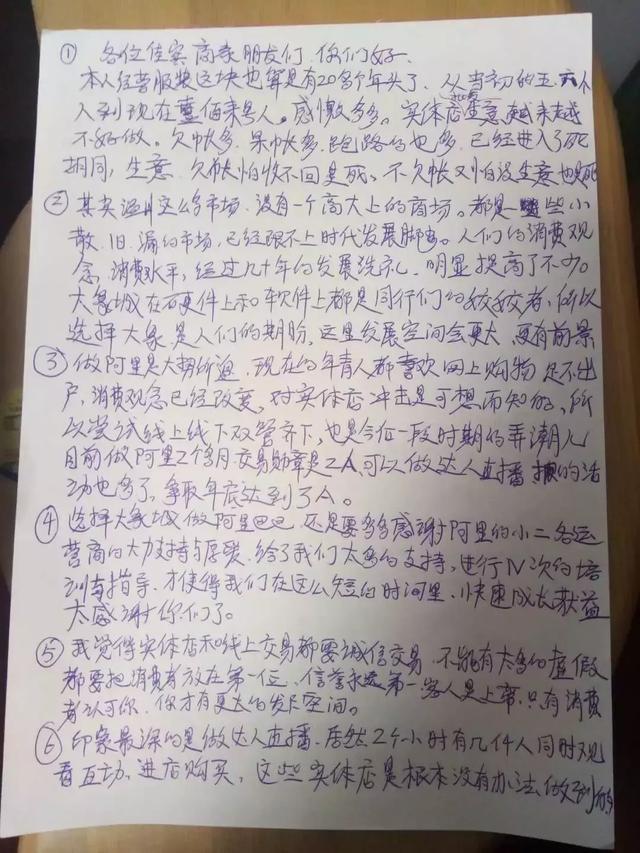 ① 各位佳宾 商亲朋友们 你们好.
本人经营服装这块也算是有20多个年头了、从当初的五、六个
人到现在壹佰来号人。感慨多多。实体店生意越来越
不好做。欠帐多、呆帐多、跑路的也多、已经进入了死
胡同, 生意、欠帐怕收不回是死、不欠帐又怕没生意也是死
② 其实温州这么多市场、没有一个高大上的商场。都是一些小
散、旧、漏的市场,已经跟不上时代发展脚步。人们的消费观
念、消费水平, 经过几十年的发展洗礼、明显提高了不少。
大象城在硬件上和软件上都是同行们的姣姣者,所以
选择大象是人们的期盼,这里发展空间会更大、更有前景
③ 做阿里是大势所趋、现在的年青人都喜欢网上购物 足不出
户,消费观念已经改变、对实体店冲击是可想而知的、所
以尝试线上线下双管齐下,也是今后一段时期的弄潮儿
目前做阿里2个月交易勋章是2A、可以做达人直播 的活
动也多了。争取年底达到3A。
④ 选择大象城 做阿里巴巴 还是要多多感谢阿里的小二各运
营商的大力支持与厚爱、给了我们太多的支持,进行N次的培
训与指导、才使得我们在这么短的时间里、快速成长获益
太感谢你们了。
⑤ 我觉得实体店和线上交易都要诚信交易、不能有太多的虚假
都要把消费者放在第一位、信誉永远第一 客人是上帝、只有消费
者认可你、你才有更大的发展空间。
⑥ 印象最深的是做达人直播、居然2个小时有几仟人同时观
看互动、进店购买、这些实体店是根本没有办法做到的